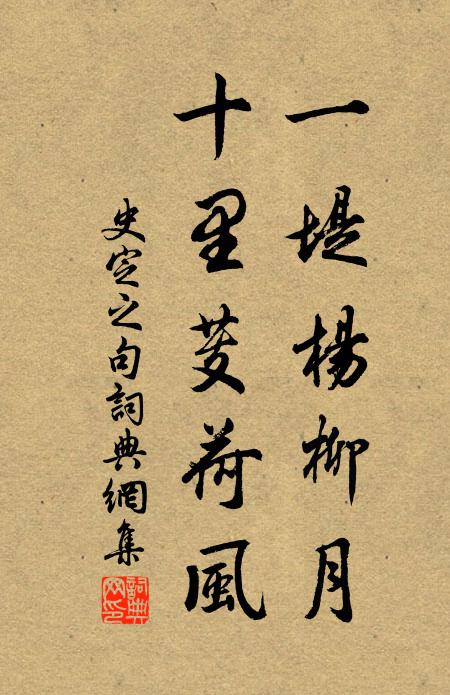 一堤楊柳月
十里芰荷風
史定之句詞典網集
詞典
网印